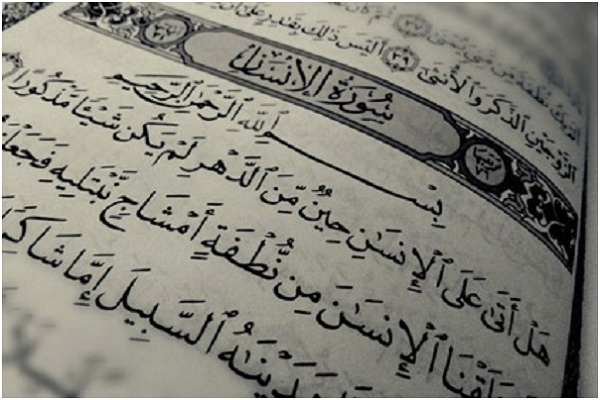 نُطْفَةً مِّن مَّنِىٍّ يُمْنَىٰ ٣٧ ثُمَّ كَانَ
ٱلزَّوْجَيْنِ ٱلذَّكَرَ وَٱلْأُنثَىٰٓ ٣٩ أَلَيْسَ ذَٰلِكَ بِقَٰدِرٍ عَلَىٰٓ أَن
سُورَةُ الإِنسَانِ
بِسْمِ ٱللَّهِ ٱلرَّحْمَٰنِ ٱلرَّحِيمِ
هَلْ أَتَىٰ عَلَى ٱلْإِنسَٰنِ حِينٌ مِّنَ ٱلدَّهْرِ لَمْ يَكُن شَيْـًٔا مَّذْكُورًا
خَلَقْنَا ٱلْإِنسَٰنَ مِن نُّطْفَةٍ أَمْشَاجٍ نَّبْتَلِيهِ فَجَعَلْ
هَدَيْنَٰهُ ٱلسَّبِيلَ إِمَّا شَاكِرًا